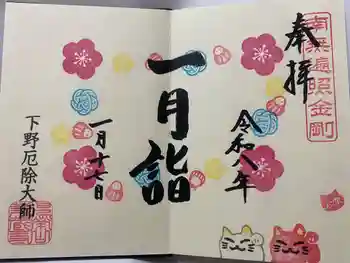 奉拝
南無遍照金剛
令和八年
一月詣
一月十七日
下野厄除大師